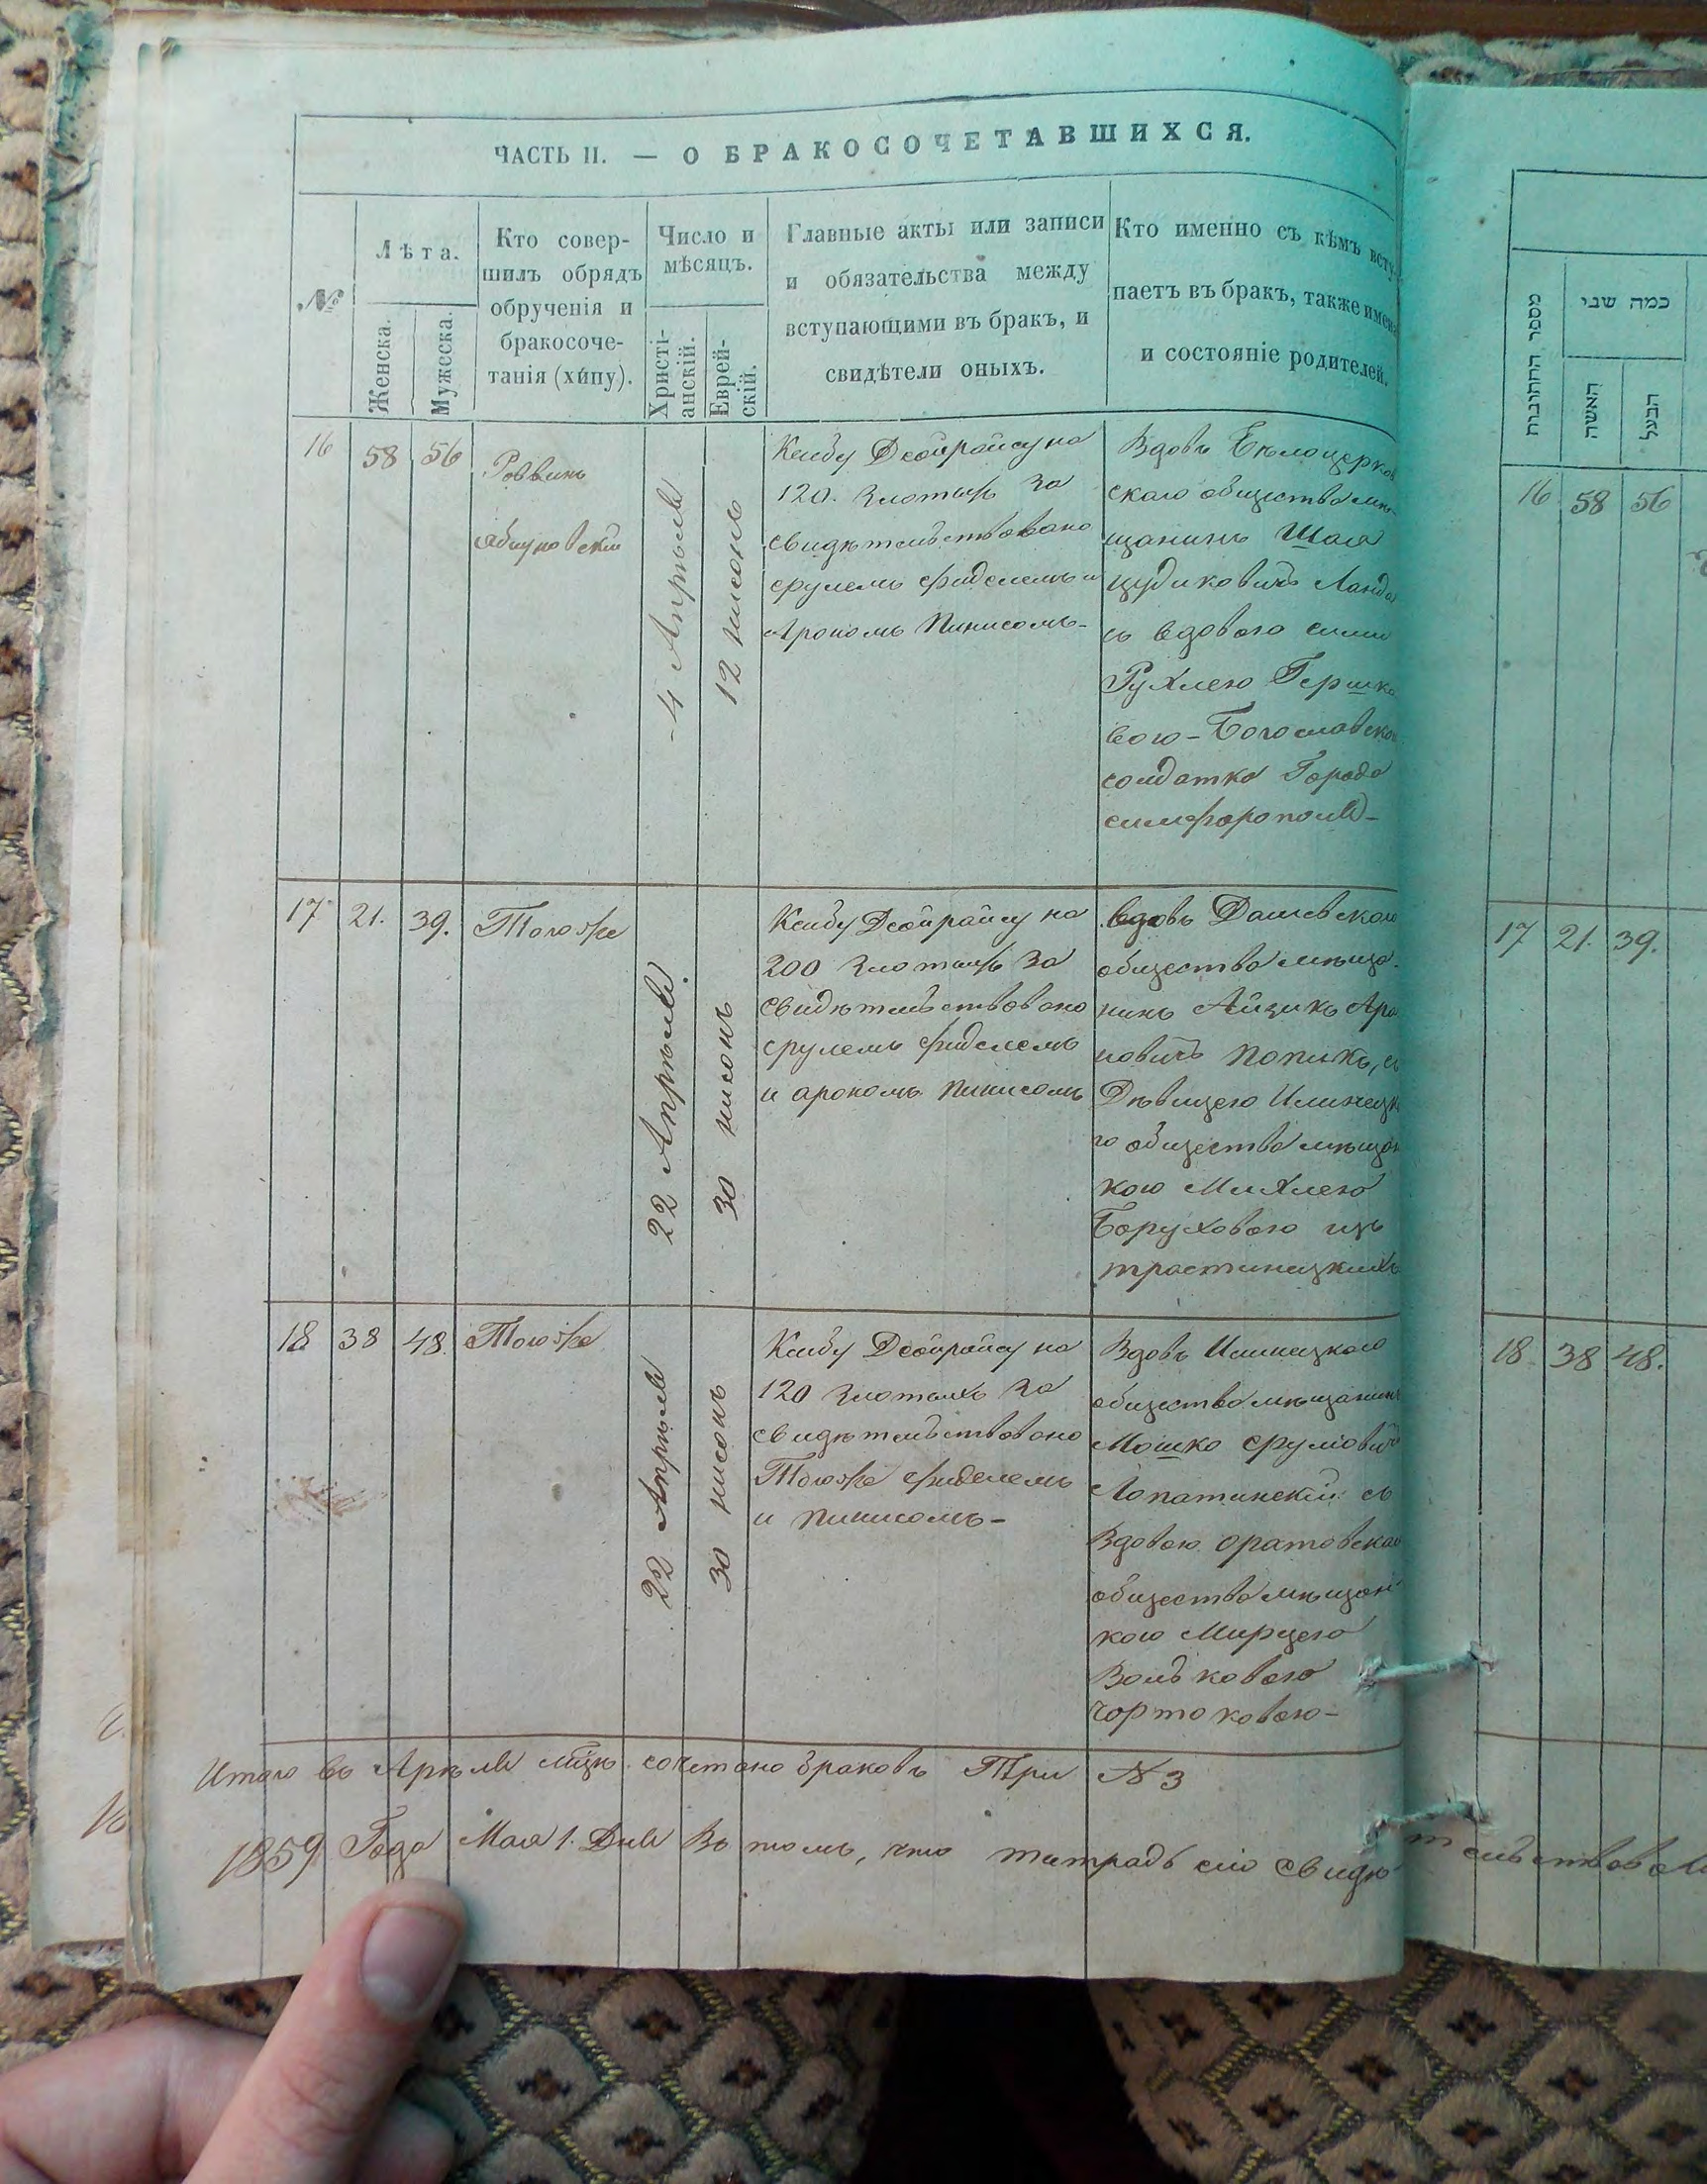 ЧАСТЬ II. — О БРАКОСОЧЕТАВШИХСЯ.
№
Лѣта.
Женска.
Мужеска.
Кто совер-
шилъ обрядъ
обрученія и
бракосоче-
танія (хи́пу).
Число и
мѣсяцъ.
Христі-
анскій.
Еврей-
скій.
Главные акты или записи
и обязательства между
вступающими въ бракъ, и
свидѣтели оныхъ.
Кто именно съ кѣмъ всту-
паетъ въ бракъ, также имен
и состояніе родителей.
16
58
56
Раввинъ
4 Апрѣля
12 нисонъ
Ксибу Деойрайсу на
120. Злотыхъ За
свидѣтельствовано
срулемъ фиделемъ и
Арономъ Пинисомъ-
Вдовъ Бѣлоцерков
скаго общества мѣ-
щанинъ Шая
цудиковичъ Ланда
съ вдовою
Рухлею Гершко
вою-Богославскою
солдатка Города
симферополя-
17
21.
39.
Тогоже
22 Апрѣля
30 нисонъ
Ксибу Деойрайсу на
200 Злотыхъ За
свидѣтельствовано
срулемъ фиделемъ
и арономъ пинисомъ
вдовъ Дашевскаго
общества мѣща-
нинъ Айзикъ Аро
новичъ Попикъ, съ
Дѣвицею Илинецка
го общества мѣщан
кою Михлею
Боруховою изъ
трастинецкихъ
18
38
48.
Тогоже
22 Апрѣля
30 нисонъ
Ксибу Деойрайсу на
120 Злотыхъ За
свидѣтельствовано
Тогоже фиделемъ
и пинисомъ-
Вдовъ Илинецкаго
общества мѣщанинъ
Мошко срулiовичъ
Лопатинскій съ
Вдовою оратовскаго
общества мѣщан-
кою Мирцею
Вольковою
чортоковою-
Итого въ Апрѣлѣ м҃цѣ сочетано браковъ Три № 3
1859 Года Мая 1. Дня Въ томъ, что тетрадь сію свидѣ
тельствовал
מספר החתונות
כמה שני
האשה
הבעל
16
58
56
17
21.
39.
18.
38
48.